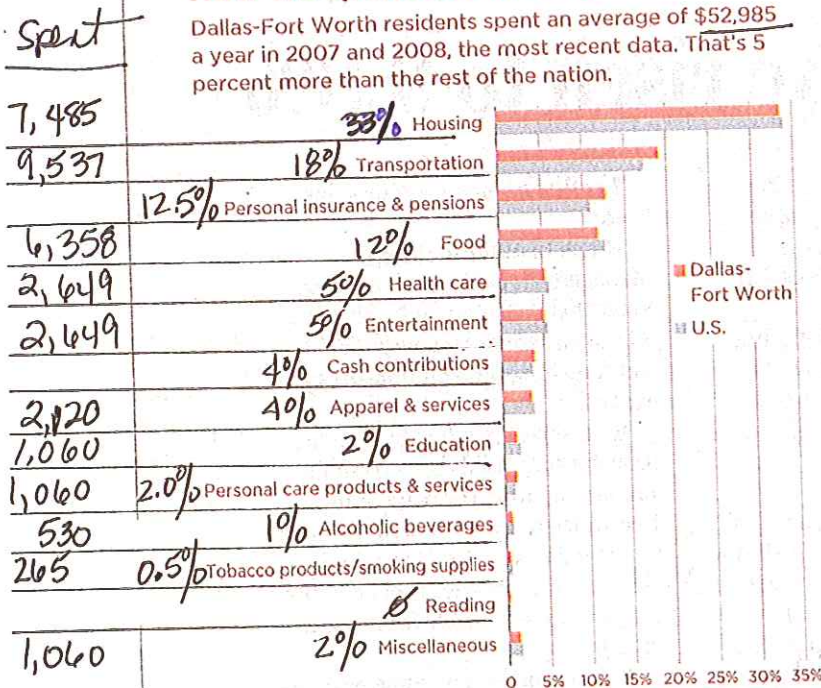 Spent
Dallas-Fort Worth residents spent an average of $52,985
a year in 2007 and 2008, the most recent data. That's 5
percent more than the rest of the nation.
7,485 33% Housing
9,537 18% Transportation
12.5% Personal insurance & pensions
6,358 12% Food
2,649 5% Health care
2,649 5% Entertainment
4% Cash contributions
2,120 4% Apparel & services
1,060 2% Education
1,060 2.0% Personal care products & services
530 1% Alcoholic beverages
265 0.5% Tobacco products/smoking supplies
Ø Reading
1,060 2% Miscellaneous
Dallas-
Fort Worth
U.S.
0 5% 10% 15% 20% 25% 30% 35%